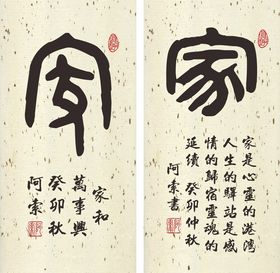 家
家是心靈的港灣
人生的驛站是感
情的歸宿靈魂的
延續 癸卯仲秋
阿索書
家和
萬事興
癸卯秋
阿索